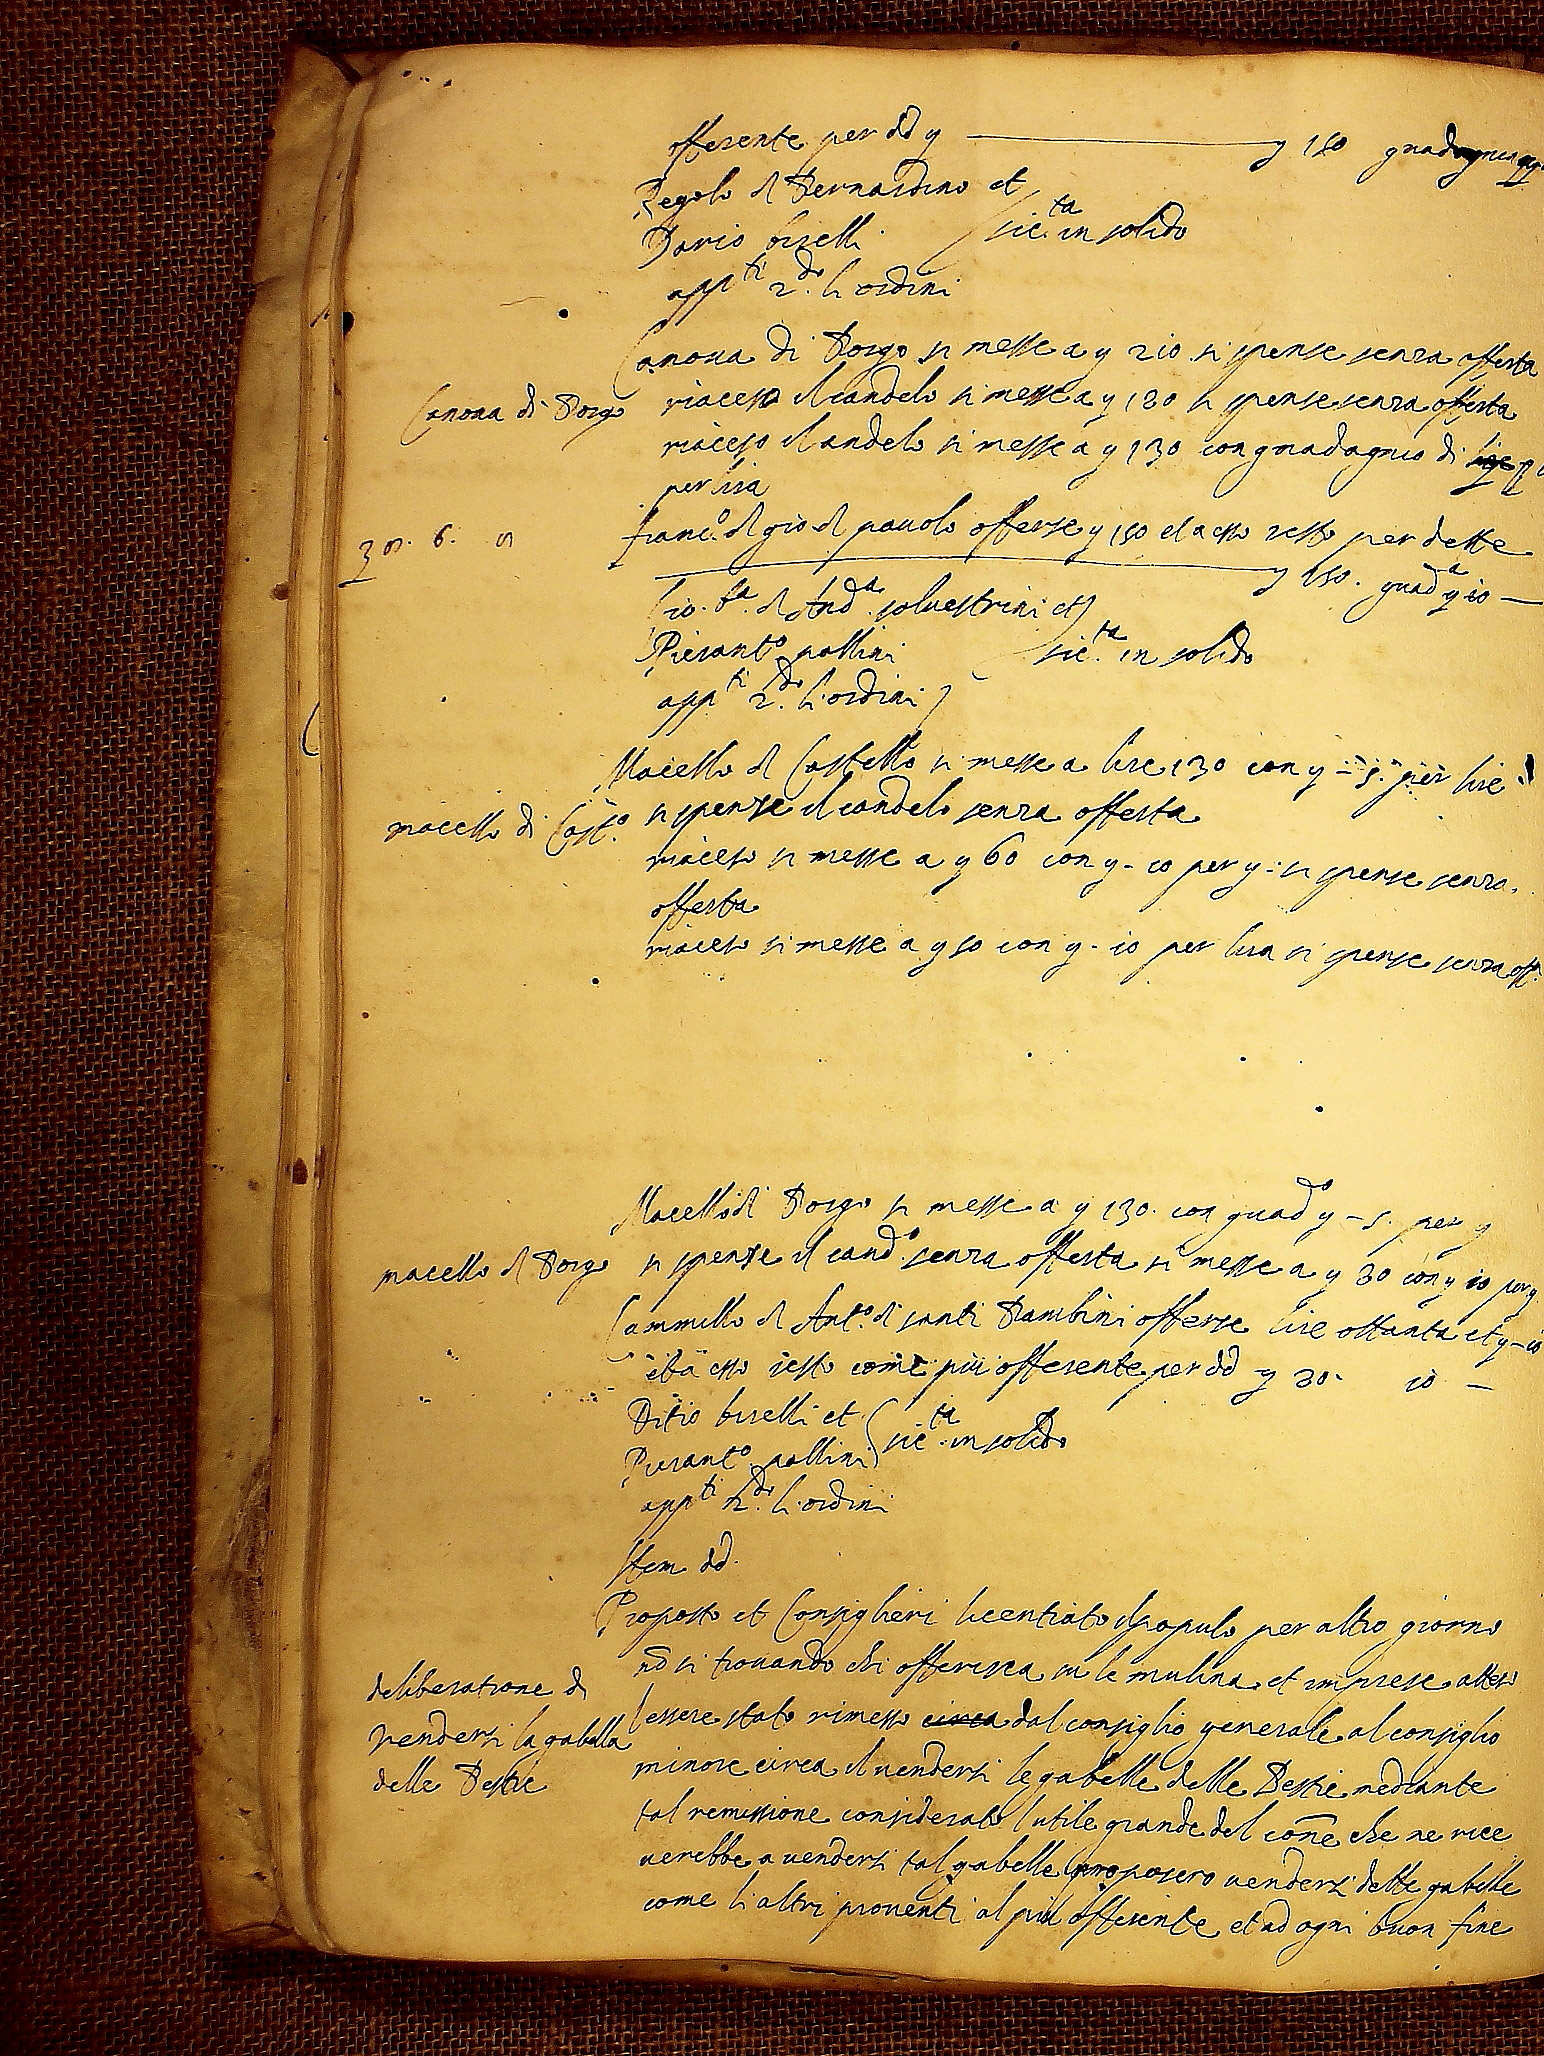 offerente per dd y ——— y 150 guadagno
Regolo d Bernardino et
Dario biselli sic.ta in solido
app.ti 2.do li ordini
Canoua di Borgo si messe a y 210 si spense senza offerta
Canoua di Borgo
riacceso il candelo si messe a y 180 si spense senza offerta
riacceso il candelo si messe a y 130 con guadagnio di
per lira
franc.o d gio d pauolo offerse y 150 et a esso resto per dette
6.
——— y 150. guad.a y 10 —
Gio. ba. d And.a saluestrini et
Pierant.o pallini sic.ta in solido
app.ti 2.do li ordini
Macello d Castello si messe a lire 130 con y - 5. per lire
macello di Cast.o
si spense il candelo senza offerta
riacceso si messe a y 60 con y - 10 per y - si spense senza
offerta
riacceso si messe a y 50 con y - 10 per lira si spense senza off.
Macello di Borgo si messe a y 130. con guad.o y - 5. per y
macello d Borgo
si spense il cand.o senza offerta si messe a y 80 con y 10 per y
Cammillo d Ant.o di santi Bambini offerse lire ottanta et y - 10
et a esso resto come piu offerente per dd y 80. 10 —
Ditio biselli et
Pierant.o pallini sic.ta in solido
app.ti 2.do li ordini
Item dd.
Proposto et Consiglieri licentiato il populo per altro giorno
nō si trouando chi offerisca su le mulina et imprese atteso
deliberatione di
lessere stato rimesso circa dal consiglio generale al consiglio
vendersi la gabella
minore circa il uendersi le gabelle delle Bestie mediante
delle Bestie
tal remissione considerato l utile grande del cōne che ne rice
uerebbe a uendersi tal gabelle proposero uendersi dette gabelle
come li altri prouenti al piu offerente et ad ogni buon fine